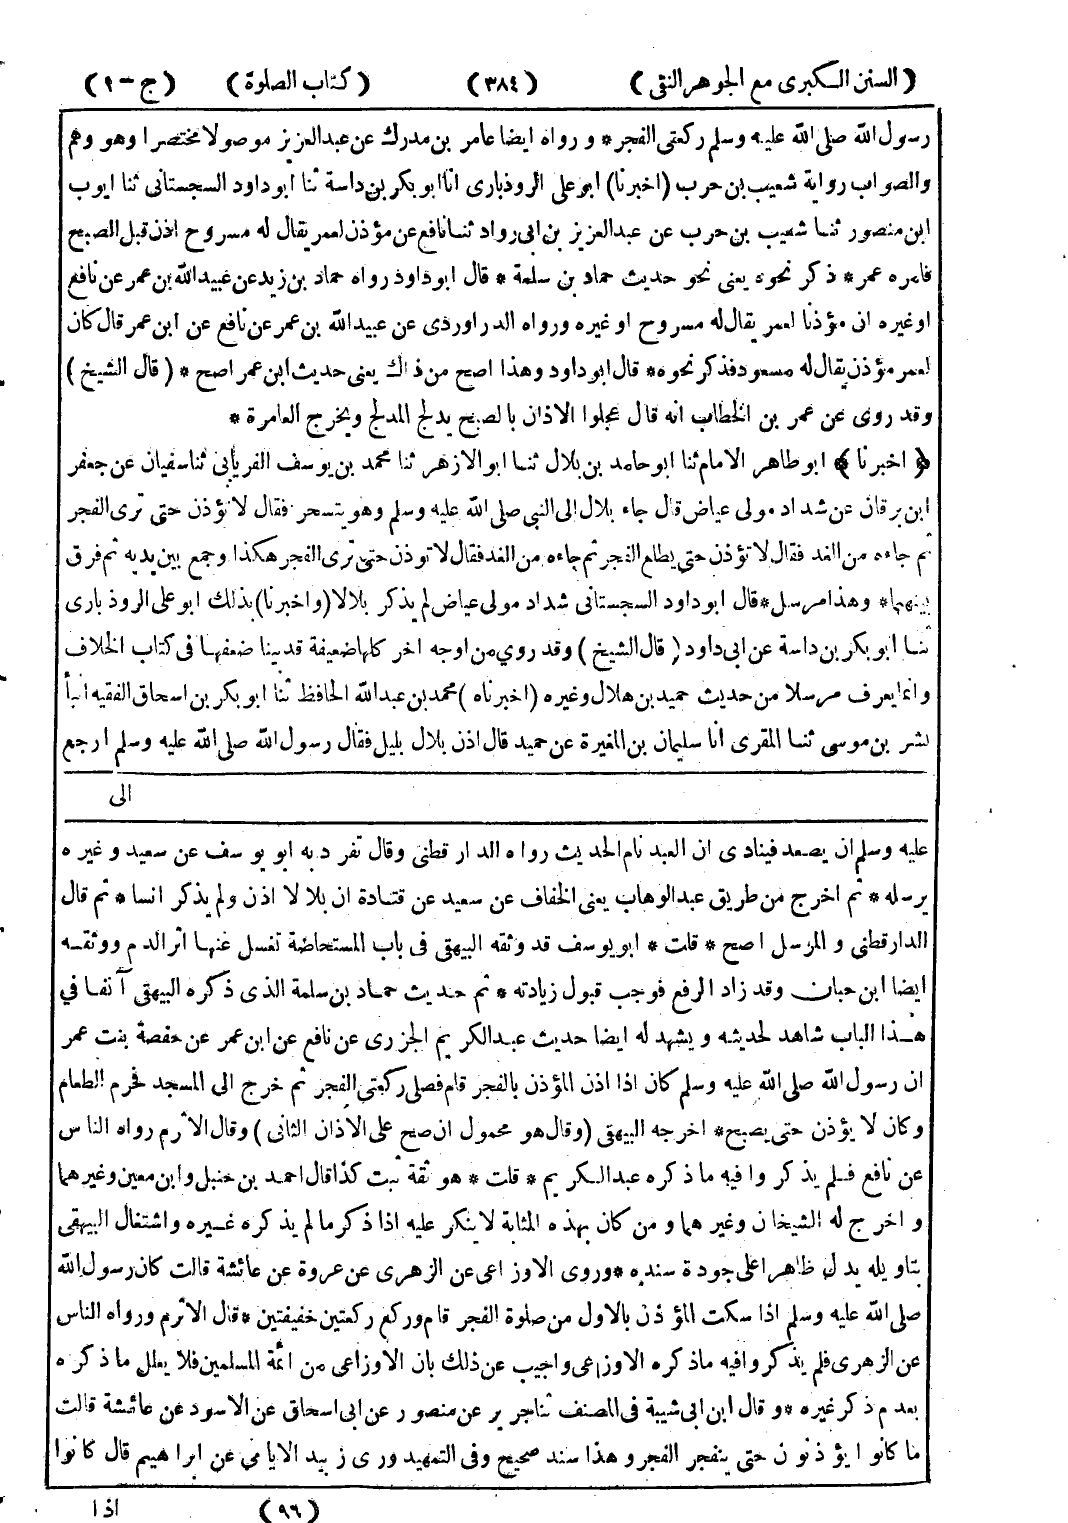 ( السنن الكبرى مع الجوهر النقى ) ( ٣٨٤ ) ( كتاب الصلوة ) ( ج - ١ )
رسول الله صلى الله عليه وسلم ركعتى الفجر * و رواه ايضا عامر بن مدرك عن عبدالعزيز موصولا مختصرا وهو وهم
والصواب رواية شعيب بن حرب (اخبرنا) ابو على الروذبارى انا ابو بكر بن داسة ثنا ابو داود السجستانى ثنا ايوب
ابن منصور ثنا شعيب بن حرب عن عبدالعزيز بن ابى رواد ثنا نافع عن مؤذن لعمر يقال له مسروح اذن قبل الصبح
فامره عمر * ذكر نحوه يعنى نحو حديث حماد بن سلمة * قال ابو داود رواه حماد بن زيد عن عبيد الله بن عمر عن نافع
او غيره ان مؤذنا لعمر يقال له مسروح او غيره ورواه الدراوردى عن عبيد الله بن عمر عن نافع عن ابن عمر قال كان
لعمر مؤذن يقال له مسعود فذكر نحوه * قال ابو داود وهذا اصح من ذاك يعنى حديث ابن عمر اصح * ( قال الشيخ )
وقد روى عن عمر بن الخطاب انه قال عجلوا الاذان بالصبح يدلج المدلج ويخرج العامرة *
﴿ اخبرنا ﴾ ابو طاهر الامام ثنا ابو حامد بن بلال ثنا ابو الازهر ثنا محمد بن يوسف الفريابى ثنا سفيان عن جعفر
ابن برقان عن شداد مولى عياض قال جاء بلال الى النبى صلى الله عليه وسلم وهو يتسحر فقال لا تؤذن حتى ترى الفجر
ثم جاءه من الغد فقال لا تؤذن حتى يطلع الفجر ثم جاءه من الغد فقال لا تؤذن حتى ترى الفجر هكذا وجمع بين يديه ثم فرق
بينهما * وهذا مرسل * قال ابو داود السجستانى شداد مولى عياض لم يذكر بلالا (واخبرنا) بذلك ابو على الروذبارى
ثنا ابو بكر بن داسة عن ابى داود ( قال الشيخ ) وقد روي من اوجه اخر كلها ضعيفة قد بينا ضعفها فى كتاب الخلاف
وانما يعرف مرسلا من حديث حميد بن هلال وغيره (اخبرناه) محمد بن عبد الله الحافظ ثنا ابو بكر بن اسحاق الفقيه انبأ
بشر بن موسى ثنا المقرى انا سليمان بن المغيرة عن حميد قال اذن بلال بليل فقال رسول الله صلى الله عليه وسلم ارجع
الى
عليه وسلم ان يصعد فينادى ان العبد نام الحديث رواه الدار قطنى وقال تفرد به ابو يوسف عن سعيد وغيره
يرسله * ثم اخرج من طريق عبدالوهاب يعنى الخفاف عن سعيد عن قتادة ان بلالا اذن ولم يذكر انسا * ثم قال
الدارقطنى و المرسل اصح * قلت * ابو يوسف قد وثقه البيهقى فى باب المستحاضة تغسل عنها اثر الدم ووثقه
ايضا ابن حبان وقد زاد الرفع فوجب قبول زيادته * ثم حديث حماد بن سلمة الذى ذكره البيهقى آنفا في
هذا الباب شاهد لحديثه و يشهد له ايضا حديث عبد الكريم الجزرى عن نافع عن ابن عمر عن حفصة بنت عمر
ان رسول الله صلى الله عليه وسلم كان اذا اذن المؤذن بالفجر قام فصلى ركعتى الفجر ثم خرج الى المسجد فحرم الطعام
وكان لا يؤذن حتى يصبح * اخرجه البيهقى (وقال هو محمول ان صح على الاذان الثانى) وقال الاثرم رواه الناس
عن نافع فلم يذكروا فيه ما ذكره عبد الكريم * قلت * هو ثقة ثبت كذا قال احمد بن حنبل وابن معين وغيرهما
و اخرج له الشيخان وغيرهما و من كان بهذه المثابة لا ينكر عليه اذا ذكر ما لم يذكره غيره واشتغال البيهقى
بتاويله يدل ظاهرا على جودة سنده * وروى الاوزاعى عن الزهرى عن عروة عن عائشة قالت كان رسول الله
صلى الله عليه وسلم اذا سكت المؤذن بالاول من صلوة الفجر قام وركع ركعتين خفيفتين * قال الاثرم ورواه الناس
عن الزهرى فلم يذكروا فيه ما ذكره الاوزاعى واجيب عن ذلك بان الاوزاعى من ائمة المسلمين فلا يعلل ما ذكره
بعدم ذكر غيره * و قال ابن ابى شيبة فى المصنف ثنا جرير عن منصور عن ابى اسحاق عن الاسود عن عائشة قالت
ما كانوا يؤذنون حتى ينفجر الفجر و هذا سند صحيح وفى التمهيد و روى زبيد الايامي عن ابراهيم قال كانوا
(٩٦) اذا